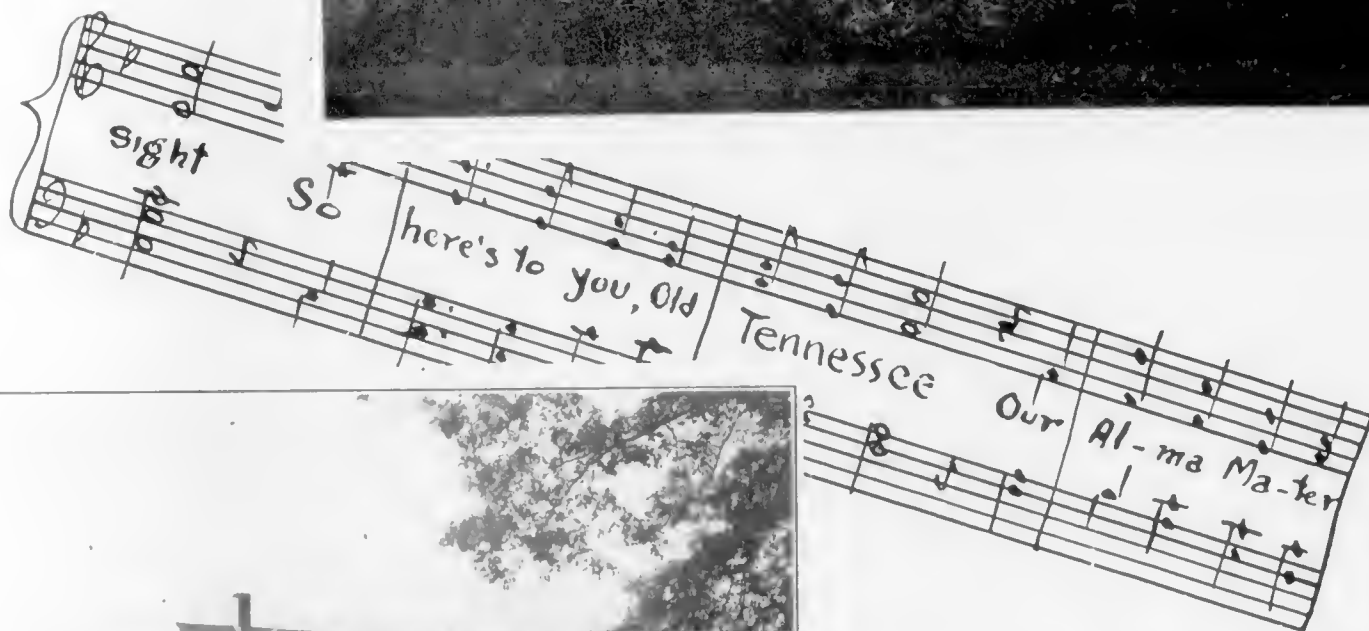 sight So here's to you, Old Tennessee Our Al-ma Ma-ter